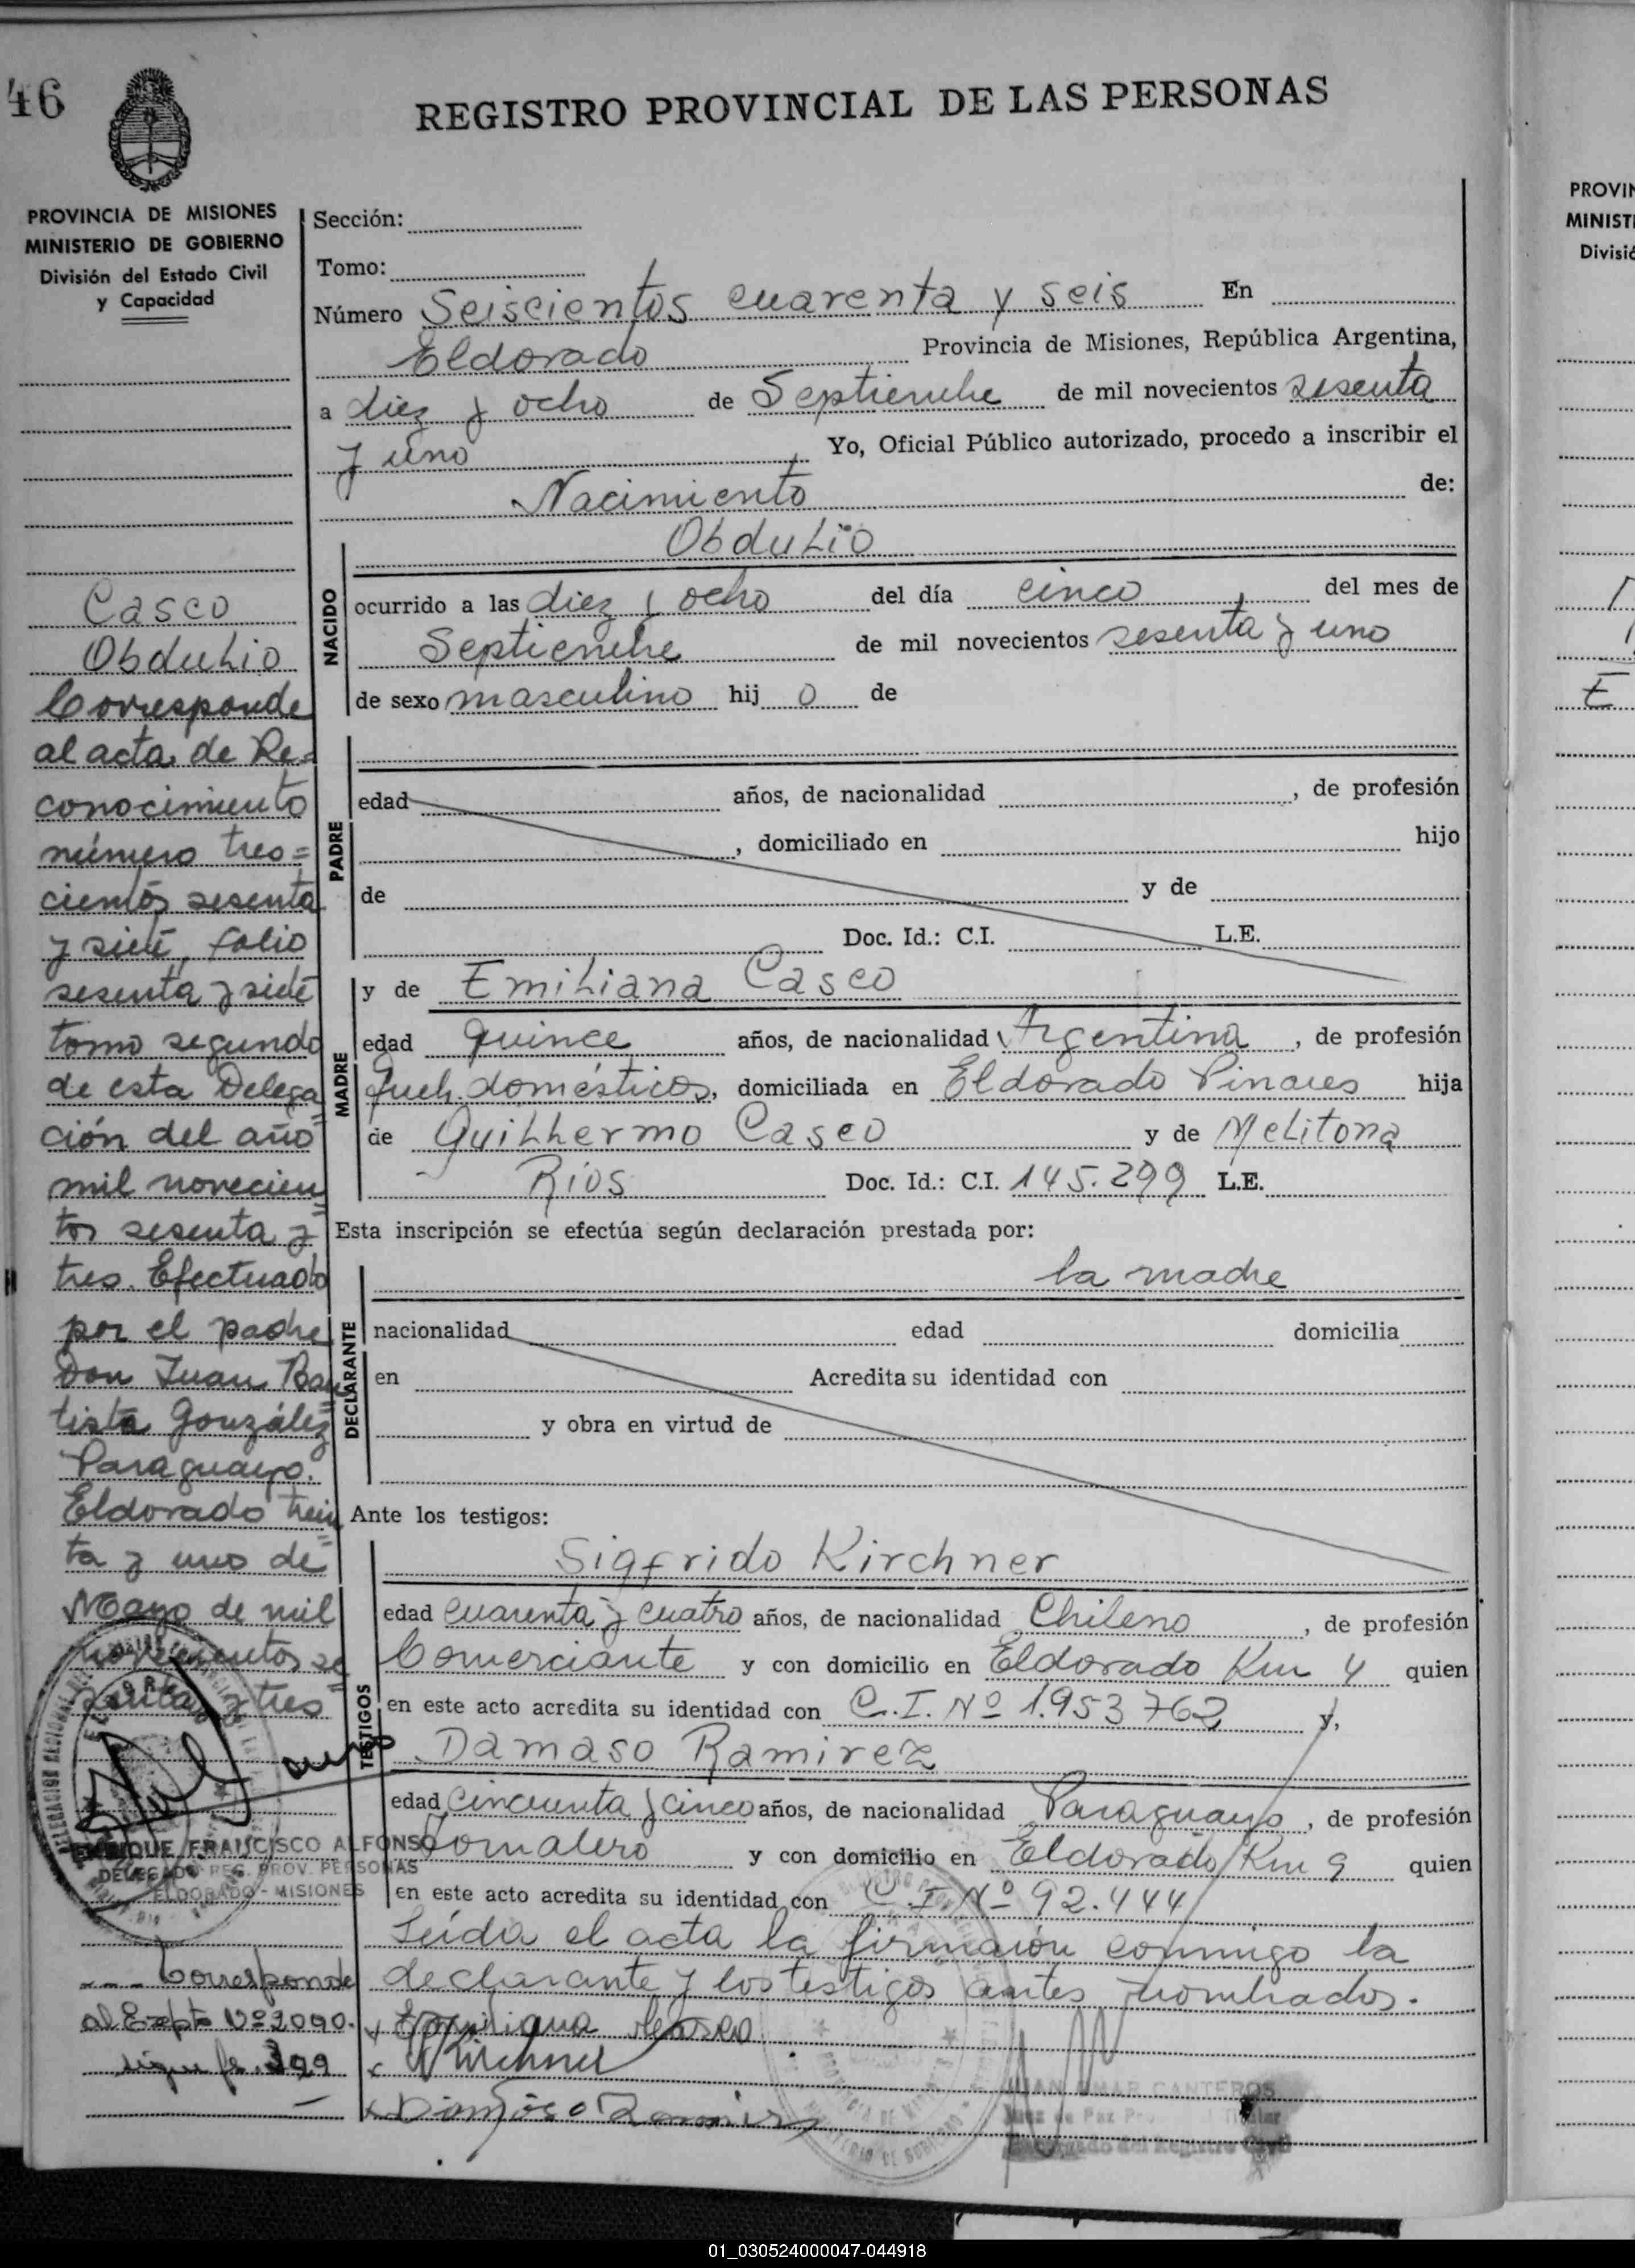 46
REGISTRO PROVINCIAL DE LAS PERSONAS
PROVINCIA DE MISIONES
MINISTERIO DE GOBIERNO
División del Estado Civil
y Capacidad
Sección:
Tomo:
Número Seiscientos cuarenta y seis En
Eldorado Provincia de Misiones, República Argentina,
a diez y ocho de Septiembre de mil novecientos sesenta
y uno Yo, Oficial Público autorizado, procedo a inscribir el
Nacimiento de:
Obdulio
NACIDO
ocurrido a las diez y ocho del día cinco, del mes de
Septiembre de mil novecientos sesenta y uno
de sexo masculino hijo de
PADRE
edad años, de nacionalidad , de profesión
, domiciliado en hijo
de y de
Doc. Id.: C.I. L.E.
MADRE
y de Emiliana Casco
edad quince años, de nacionalidad Argentina, de profesión
queh. domésticos, domiciliada en Eldorado Pinares hija
de Guillermo Casco y de Melitona
Ríos Doc. Id.: C.I. 145.299 L.E.
Esta inscripción se efectúa según declaración prestada por:
la madre
DECLARANTE
nacionalidad edad domicilia
en Acredita su identidad con
y obra en virtud de
Ante los testigos:
TESTIGOS
Sigfrido Kirchner
edad cuarenta y cuatro años, de nacionalidad Chileno, de profesión
Comerciante y con domicilio en Eldorado Km 4 quien
en este acto acredita su identidad con C.I. Nº 1.953762 y,
Damaso Ramirez
edad cincuenta y cinco años, de nacionalidad Paraguayo, de profesión
Jornalero y con domicilio en Eldorado Km 9 quien
en este acto acredita su identidad con C.I Nº 92.444
Leída el acta la firmaron conmigo la
declarante y los testigos antes nombrados.
Emiliana Casco
Kirchner
Damaso Ramirez
JUAN OMAR CANTEROS
Juez de Paz Titular
Encargado del Registro Civil
Casco
Obdulio
Corresponde
al acta de Re=
conocimiento
número tres=
cientos sesenta
y siete, folio
sesenta y siete
tomo segundo
de esta Delega=
ción del año
mil novecien=
tos sesenta y
tres. Efectuado
por el padre
Don Juan Bau=
tista González
Paraguayo.
Eldorado trein=
ta y uno de
Mayo de mil
novecientos se=
senta y tres
ENRIQUE FRANCISCO ALFONSO
DELEGADO REG. PROV. PERSONAS
ELDORADO - MISIONES
Corresponde
al Expte Nº 2090.
sigue fo. 399
PROVIN
MINISTE
Divisió
01_030524000047-044918